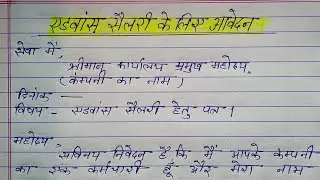 एडवांस सैलरी के लिए आवेदन
सेवा में,
श्रीमान् कार्यालय प्रमुख महोदय,
(कंपनी का नाम)
दिनांक —
विषय - एडवांस सैलरी हेतु पत्र।
महोदय,
सविनय निवेदन है कि मैं आपके कंपनी
का एक कर्मचारी हूँ और मेरा नाम